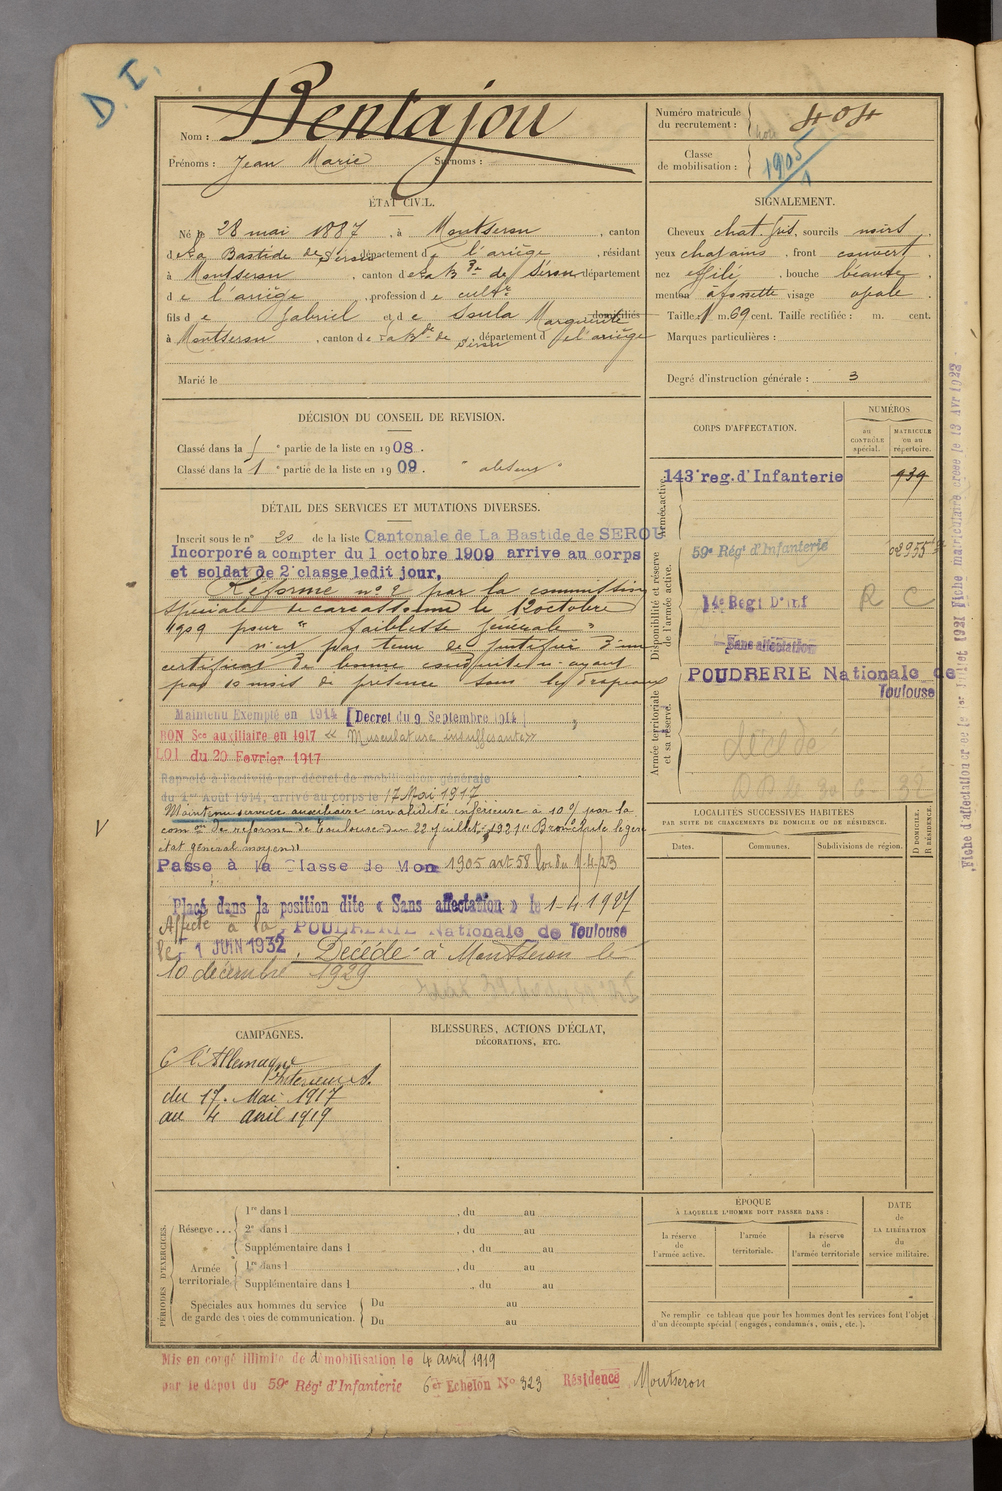 D. I.
Nom : Bentajou
Prénoms : Jean Marie Surnoms :
Numéro matricule du recrutement : 404
Classe de mobilisation : 1905
ÉTAT CIVIL.
Né le 28 mai 1887, à Montseron, canton
de La Bastide de Sérou, département de l'ariège, résidant
à Montseron, canton de La Bde de Sérou, département
de l'ariège, profession de cultr
fils de Gabriel et de Soula Marguerite domiciliés
à Montseron, canton de La Bde de Sérou, département de l'ariège
Marié le
SIGNALEMENT.
Cheveux chat. , sourcils noirs,
yeux chatains, front couvert,
nez effilé, bouche béante,
menton à fossette visage opale.
Taille : 1 m. 69 cent. Taille rectifiée : m. cent.
Marques particulières :
Degré d'instruction générale : 3
DÉCISION DU CONSEIL DE REVISION.
Classé dans la e partie de la liste en 1908.
Classé dans la 1 e partie de la liste en 1909. " absent "
DÉTAIL DES SERVICES ET MUTATIONS DIVERSES.
Inscrit sous le n° 20 de la liste Cantonale de La Bastide de SEROU
Incorporé a compter du 1 octobre 1909 arrive au corps
et soldat de 2e classe ledit jour,
Réformé n° 2 par la commission
spéciale de carcassonne le 12 octobre
1909 pour " faiblesse générale "
n'est pas tenu de justifier d'un
certificat de bonne conduite n'ayant
pas 10 mois de présence sous les drapeaux
Maintenu Exempté en 1914 [Decret du 9 Septembre 1914]
BON Sce auxiliaire en 1917 « Musculature insuffisante »
LOI du 20 Fevrier 1917
Rappelé à l'activité par décret de mobilisation générale
du 1er Août 1914, arrivé au corps le 17 Mai 1917
Maintenu service auxiliaire invalidité inférieure à 10 % par la
com on de réforme de Toulouse du 22 juillet 1921 " Bronchite légère
état général moyen "
Passé à la Classe de Mob 1905 art 58 loi du 1.4.23
Placé dans la position dite « Sans affectation » le 1-4 1927
Affecté à la POUDRERIE Nationale de Toulouse
le 1 JUIN 1932. Décédé à Montseron le
10 décembre 1929
V
CORPS D'AFFECTATION.
NUMÉROS
au CONTRÔLE spécial.
MATRICULE ou au répertoire.
Armée active.
143e reg. d'Infanterie 939
Disponibilité et réserve de l'armée active.
59e Régt d'Infanterie
14e Regt D'Inf R C
Sans affectation
Armée territoriale et sa réserve.
POUDRERIE Nationale de
Toulouse
décédé
LOCALITÉS SUCCESSIVES HABITÉES
PAR SUITE DE CHANGEMENTS DE DOMICILE OU DE RÉSIDENCE.
Dates. Communes. Subdivisions de région. D DOMICILE. R RÉSIDENCE.
Fiche d'affectation créée le 1er Juillet 1921 Fiche matriculaire créée le 13 Avr 1922
CAMPAGNES.
C l'Allemagne
Intérieur S.
du 17. Mai 1917
au 4 avril 1919
BLESSURES, ACTIONS D'ÉCLAT,
DÉCORATIONS, ETC.
PÉRIODES D'EXERCICES.
Réserve ...
1re dans l , du au
2e dans l , du au
Supplémentaire dans l , du au
Armée territoriale.
1re dans l , du au
Supplémentaire dans l , du au
Spéciales aux hommes du service
de garde des voies de communication.
Du au
Du au
ÉPOQUE
À LAQUELLE L'HOMME DOIT PASSER DANS :
la réserve de l'armée active.
l'armée territoriale.
la réserve de l'armée territoriale
DATE de LA LIBÉRATION du service militaire.
Ne remplir ce tableau que pour les hommes dont les services font l'objet
d'un décompte spécial (engagés, condamnés, omis, etc.).
Mis en congé illimité de démobilisation le 4 avril 1919
par le dépot du 59e Régt d'Infanterie 6e Echelon N° 323 Résidence Montseron